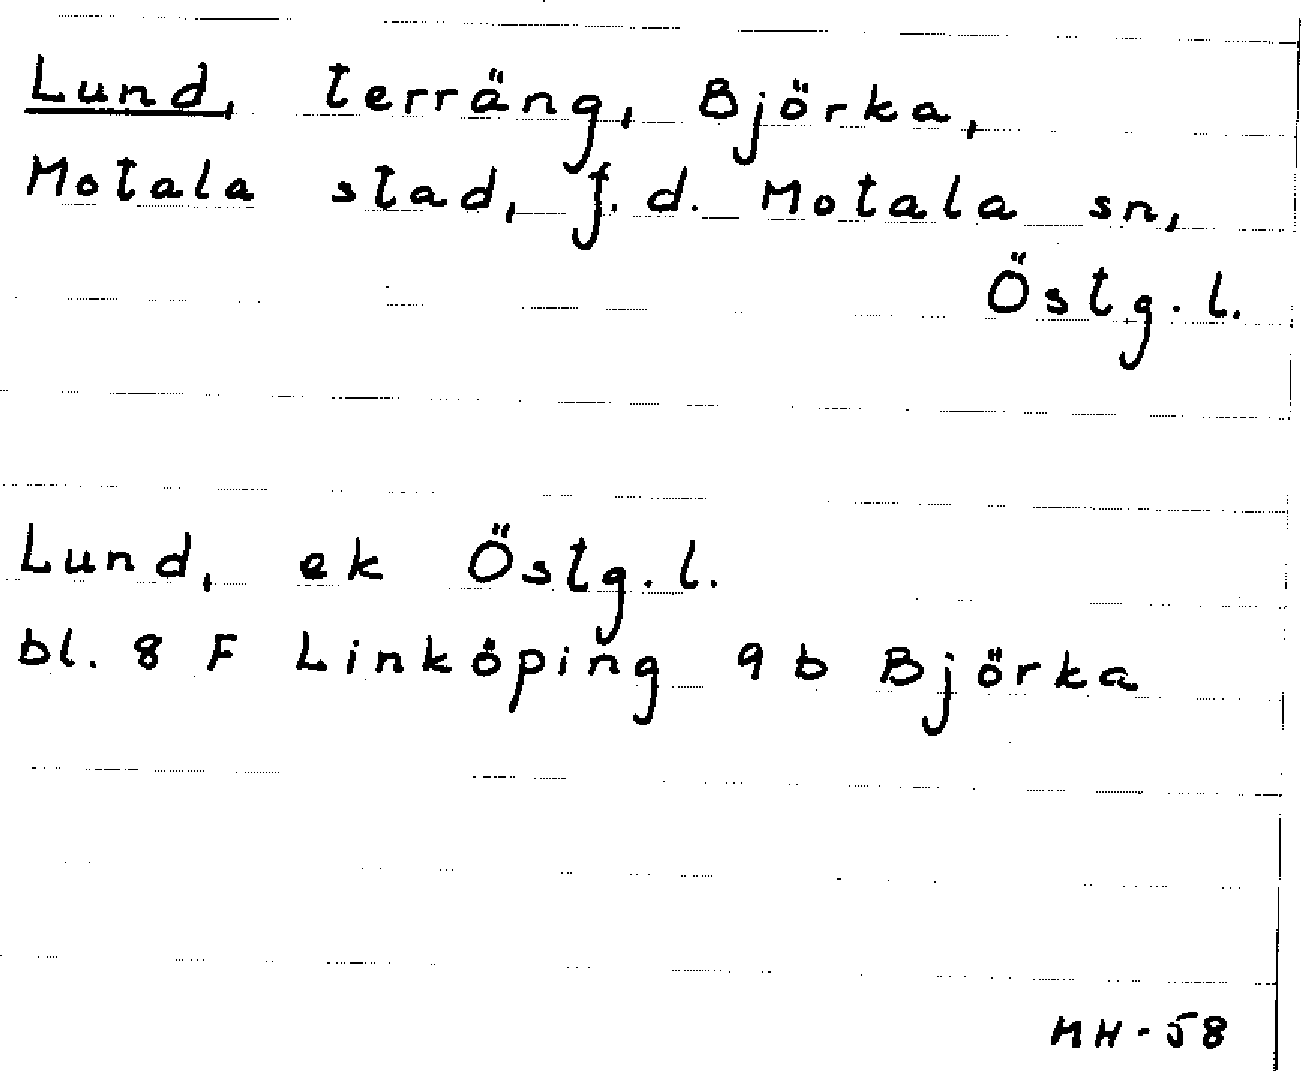 Lund, terräng, Björka,
Motala stad, f.d. Motala sn,
Östg.l.
Lund, ek Östg.l.
bl. 8 F Linköping 9 b Björka
MH-58